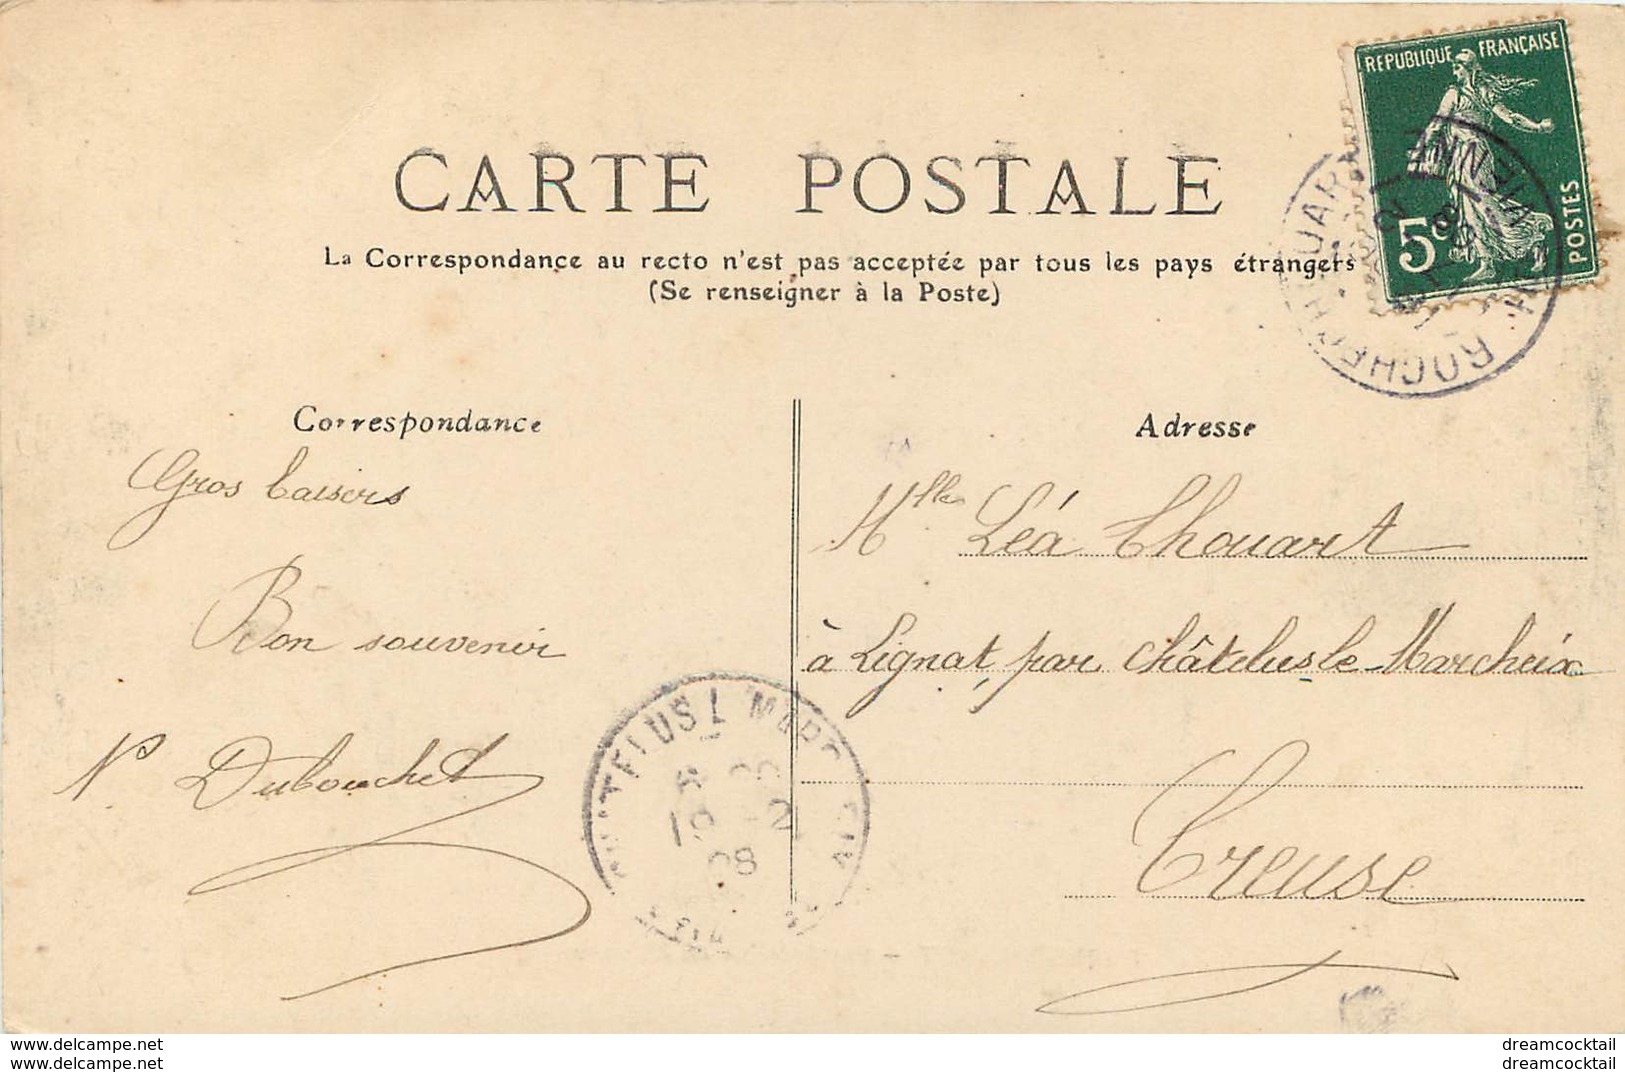 CARTE POSTALE
La Correspondance au recto n'est pas acceptée par tous les pays étrangers
(Se renseigner à la Poste)
REPUBLIQUE FRANÇAISE
5c
POSTES
ROCHECHOUART
Hte VIENNE
Correspondance
Gros baisers
Bon souvenir
N. Dubouchet
Adresse
Mlle Léa Thouart
à Lignat, par Châtelus-le-Marcheix
Creuse
08
www.delcampe.net
www.delcampe.net
dreamcocktail
dreamcocktail